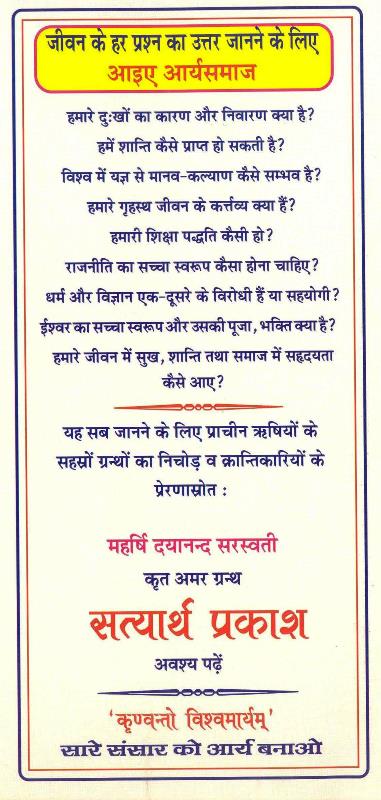 जीवन के हर प्रश्न का उत्तर जानने के लिए
आइए आर्यसमाज
हमारे दुःखों का कारण और निवारण क्या है?
हमें शान्ति कैसे प्राप्त हो सकती है?
विश्व में यज्ञ से मानव-कल्याण कैसे सम्भव है?
हमारे गृहस्थ जीवन के कर्त्तव्य क्या हैं?
हमारी शिक्षा पद्धति कैसी हो?
राजनीति का सच्चा स्वरूप कैसा होना चाहिए?
धर्म और विज्ञान एक-दूसरे के विरोधी हैं या सहयोगी?
ईश्वर का सच्चा स्वरूप और उसकी पूजा, भक्ति क्या है?
हमारे जीवन में सुख, शान्ति तथा समाज में सहृदयता
कैसे आए?
यह सब जानने के लिए प्राचीन ऋषियों के
सहस्रों ग्रन्थों का निचोड़ व क्रान्तिकारियों के
प्रेरणास्रोत :
महर्षि दयानन्द सरस्वती
कृत अमर ग्रन्थ
सत्यार्थ प्रकाश
अवश्य पढ़ें
'कृण्वन्तो विश्वमार्यम्'
सारे संसार को आर्य बनाओ